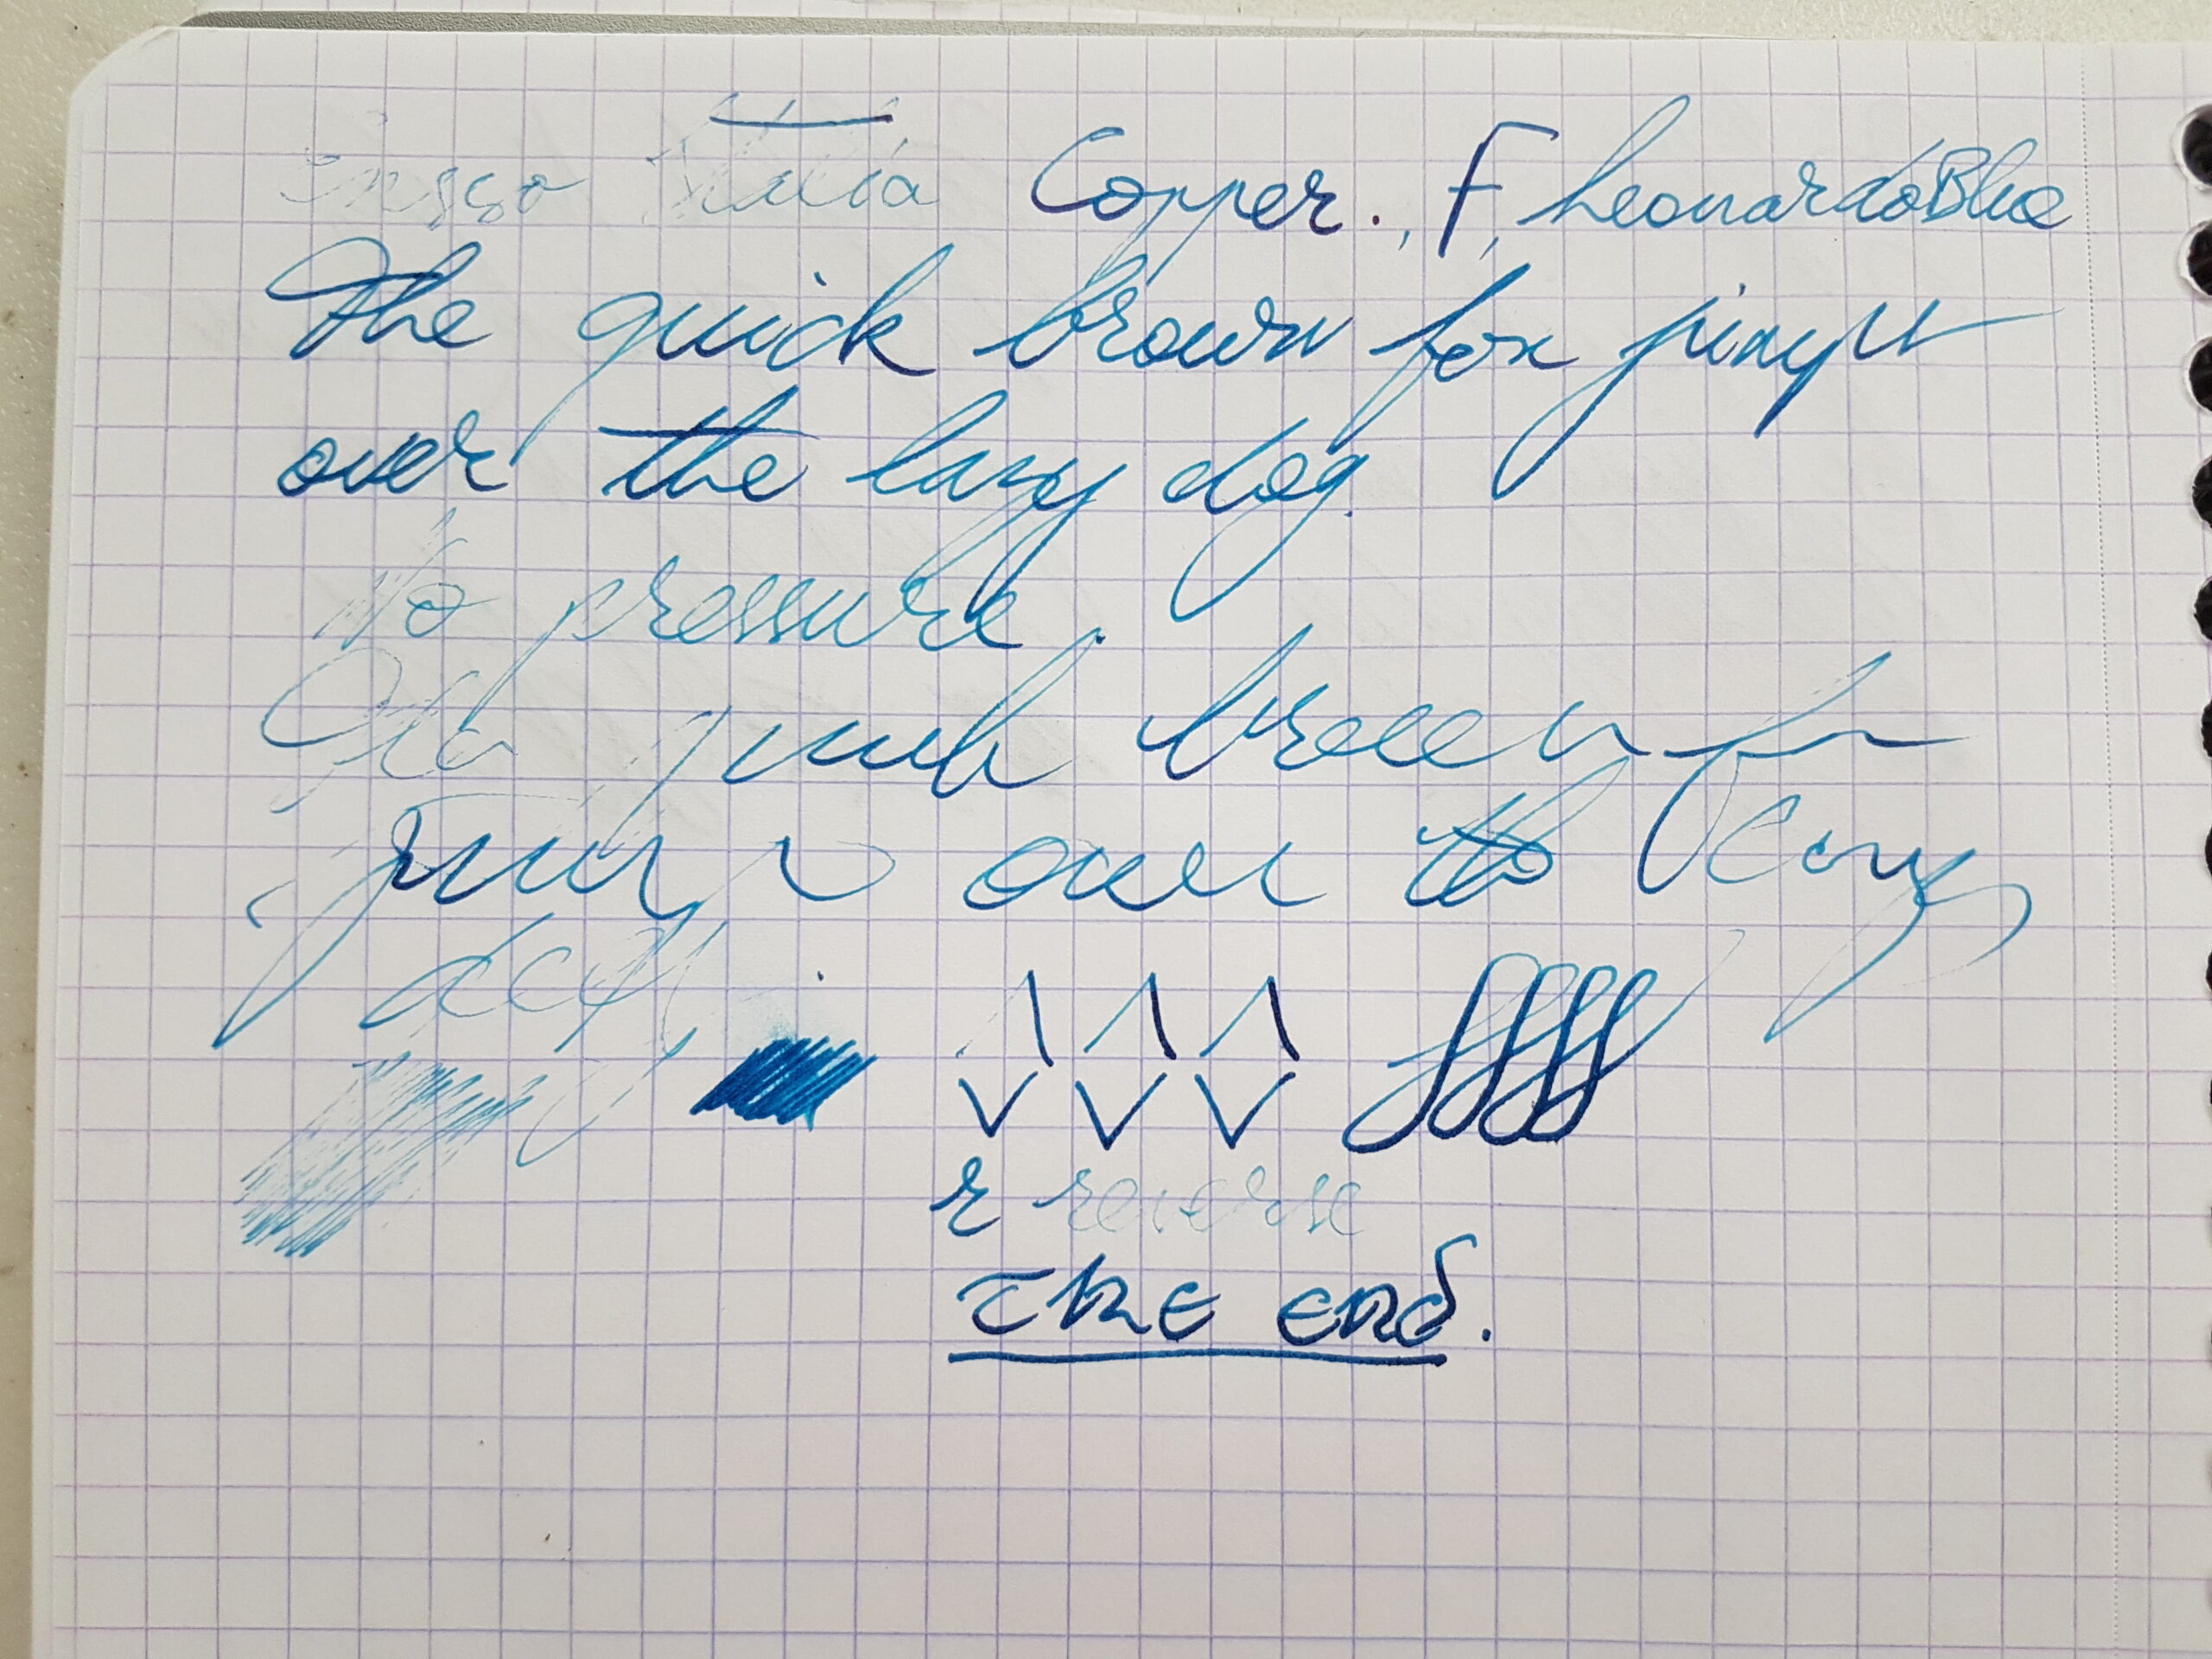 Ensso Italia Copper., F, Leonardo Blue
The quick brown fox jumps
over the lazy dog.
No pressure.
The quick brown fox
jumps over the lazy
dog.
r reverse
The end.